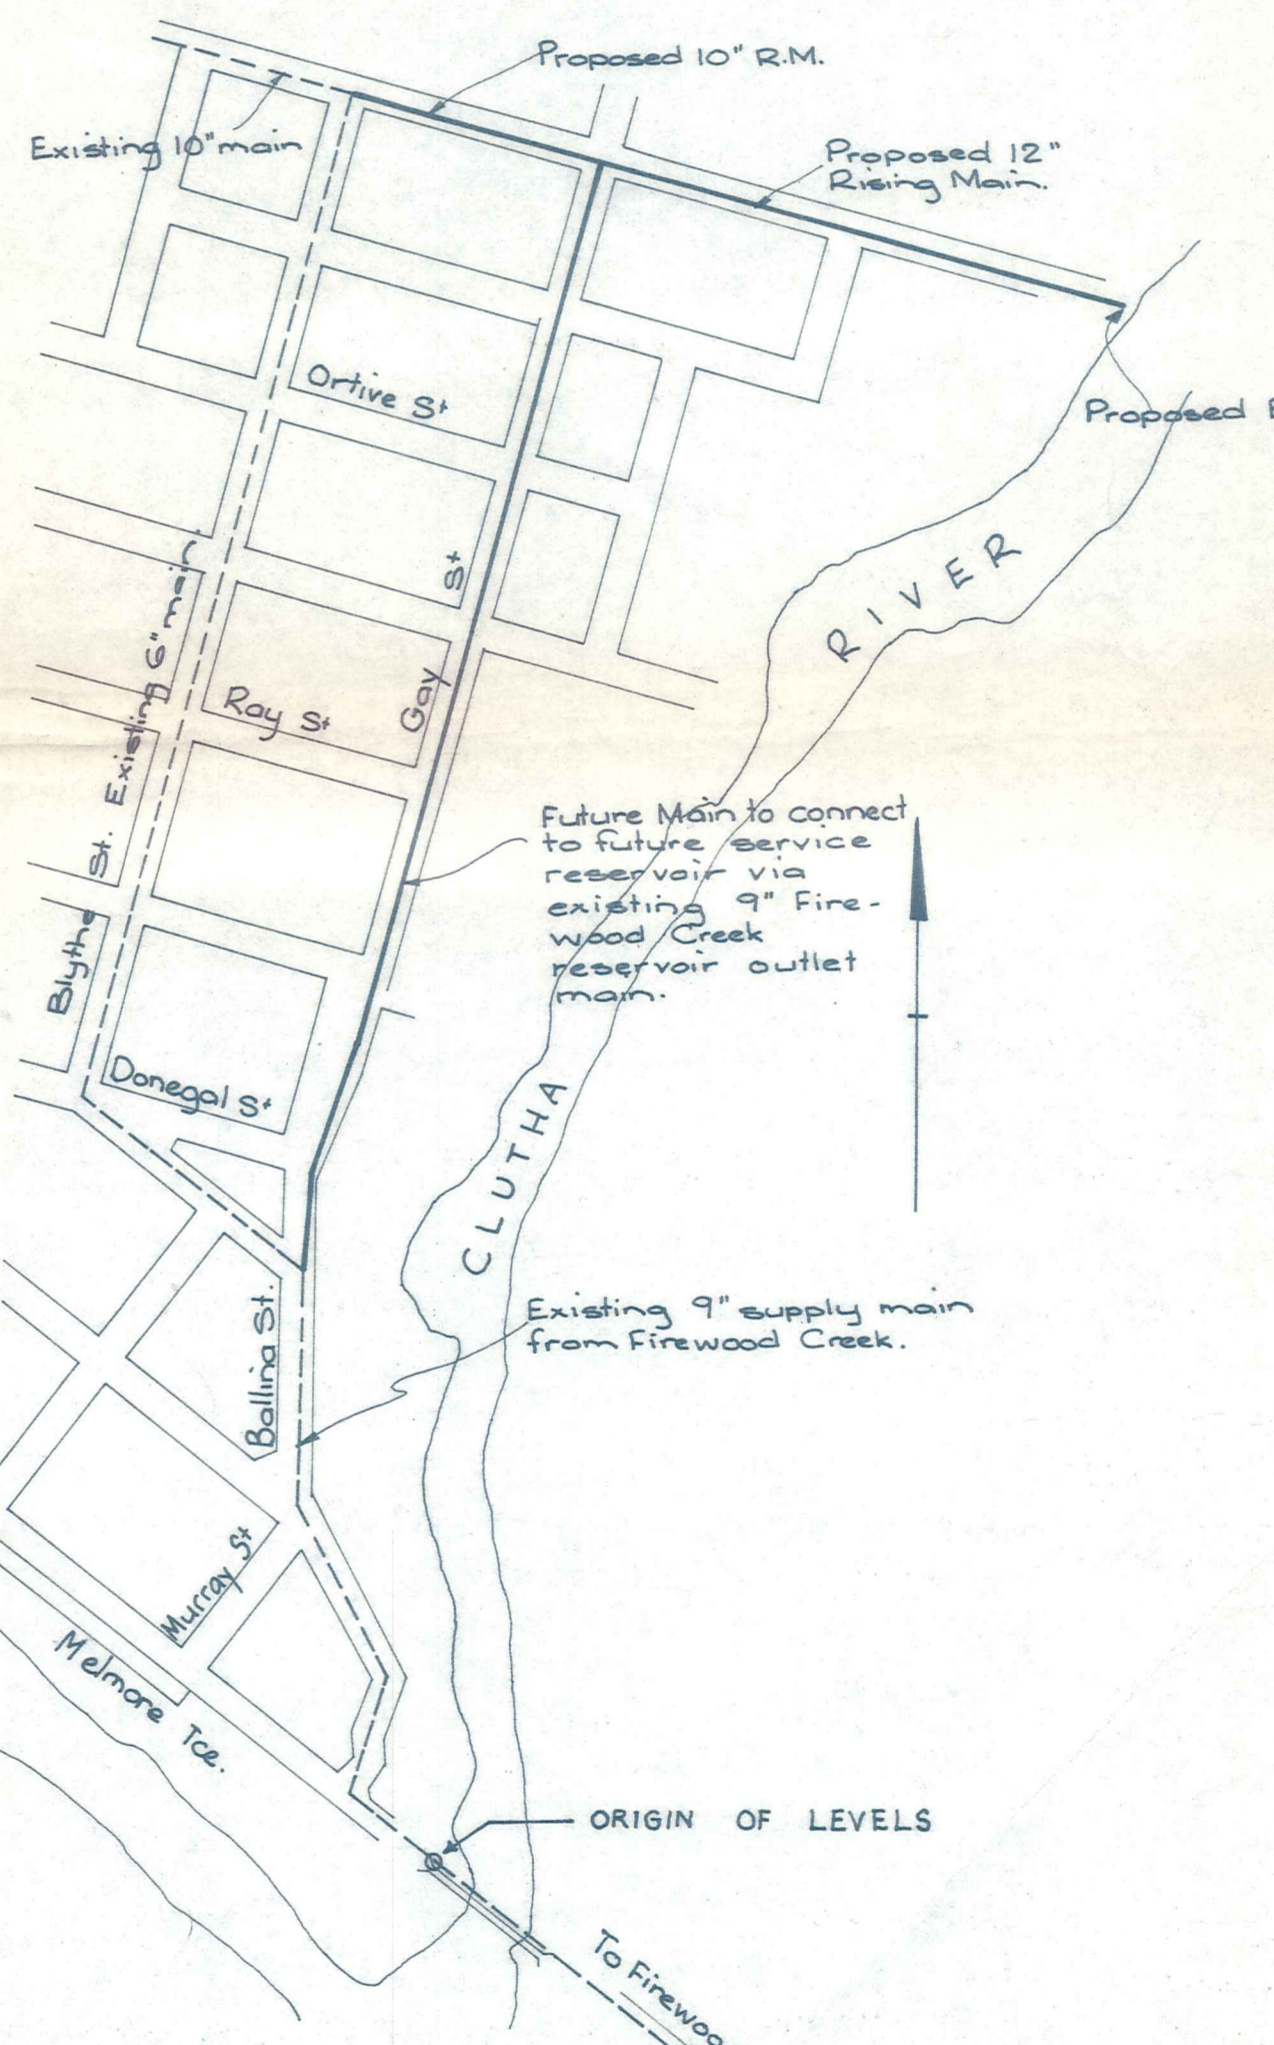 Proposed 10" R.M.
Existing 10" main
Proposed 12"
Rising Main.
Ortive St
Proposed
RIVER
Gay St
Ray St
Blythe St. Existing 6" main.
Future Main to connect
to future service
reservoir via
existing 9" Fire-
wood Creek
reservoir outlet
main.
Donegal St
CLUTHA
Existing 9" supply main
from Firewood Creek.
Ballina St.
Murray St
Melmore Tce.
ORIGIN OF LEVELS
To Firewoo